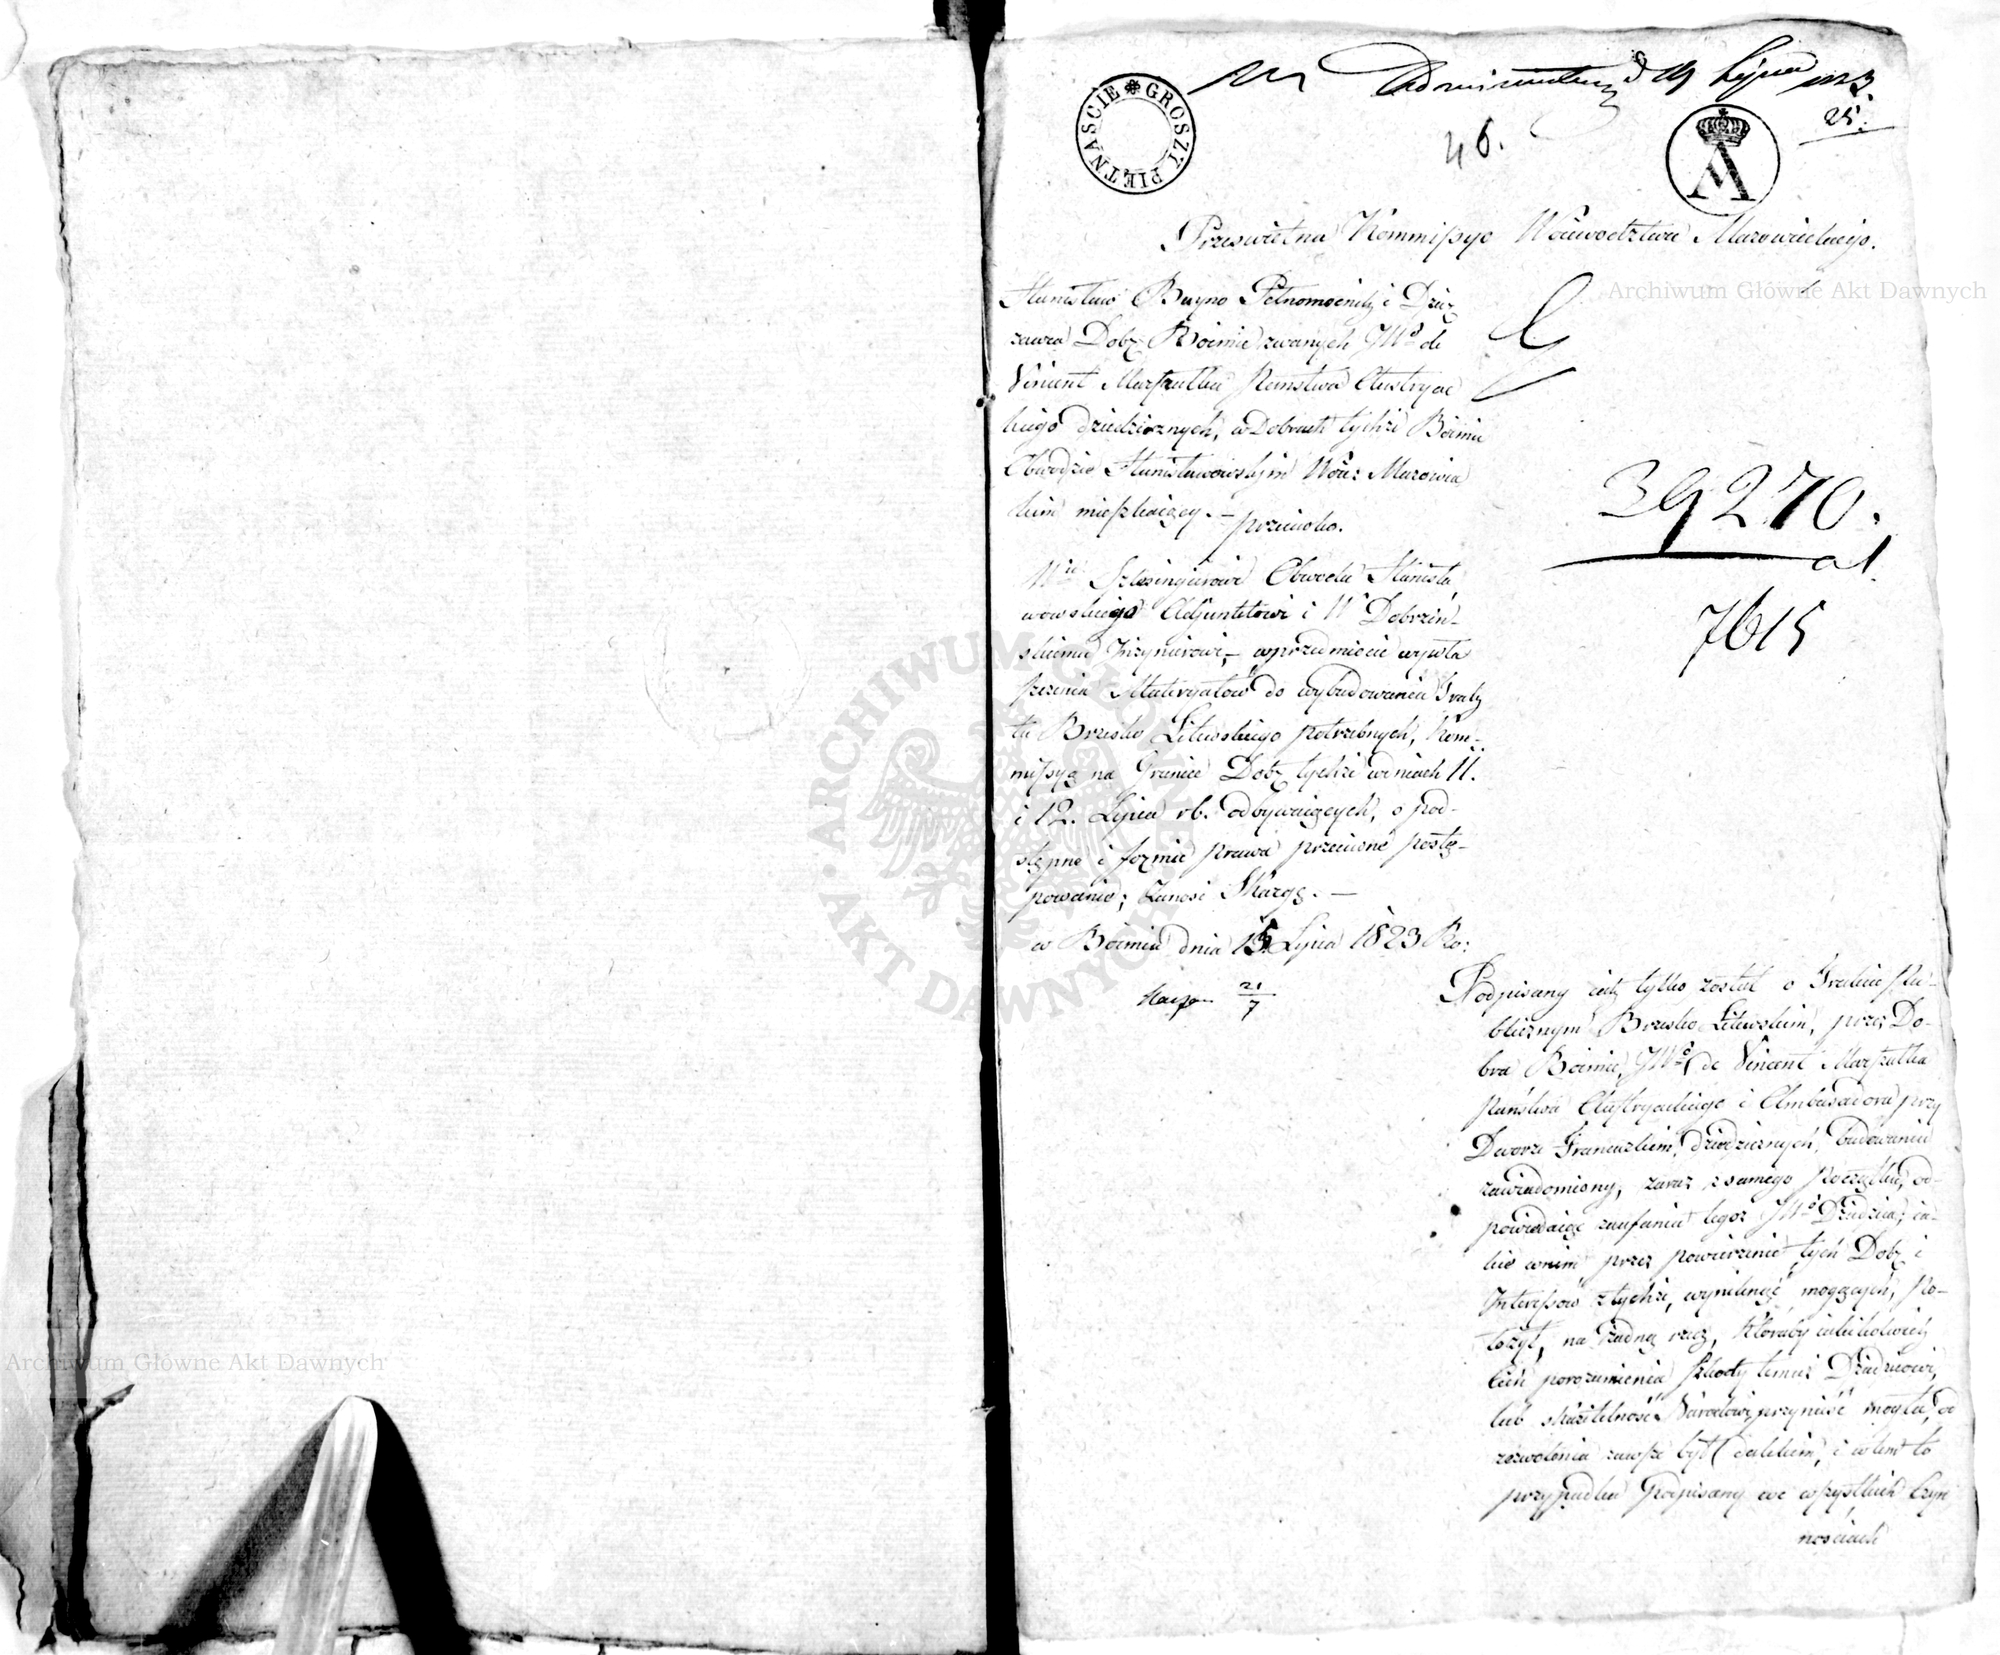 GROSZY PIĘTNAŚCIE
d 19 Lipca 1823
25.
46.
Prześwietna Kommissyo Woiewodztwa Mazowieckiego.
Stanisław Buyno Pełnomocnik i Dzier
żawca Dobr Boimie zwanych JWo de
Vincent Marszałka Państwa Austryac
kiego dziedzicznych, w Dobrach tychże Boimiu
Obwodzie Stanisławowskim Woie: Mazowie
ckim mieszkaiący. —
przeciwko.
Wu Szlezingierowi Obwodu Stanisła
wowskiego Adjunktowi i W Dobrzeń-
skiemu Inżynierowi, — w przedmiocie wywła
szczenia Materyałów do wybudowania Trak
tu Brzesko Litewskiego potrzebnych, Kom-
missyą na Gruncie Dobr tychże w dniach 11.
i 12. Lipca rb. odbywaiących, o pod-
stępne i formie prawa przeciwne postę-
powanie; zanosi Skargę. —
w Boimiu dnia 15. Lipca 1823 Ro:
21/7
39270.
a 1.
7615
Podpisany iak tylko został o Trakcie Pu-
blicznym Brzesko Litewskim, przez Do-
bra Boimie, JWo de Vincent Marszałka
Państwa Austryackiego i Ambasadora przy
Dworze Francuzkim, dziedzicznych, budowaniu
zawiadomiony, zaraz z samego Początku, od-
powiadaiąc zaufaniu tegoż JWo Dziedzica, ia-
kie w nim przez powierzenie tych Dobr i
Interessów z tychże, wyniknąć mogących, po-
łożył, na żadną rzecz, któraby iakikolwiek
cień porozumienia szkody temuż Dziedzicowi,
lub skazitelność Narodowi przynieść mogła, od
zezwolenia zawsze był dalekim, i w tem to
przypadku Podpisany we wszystkich Czyn
nościach
Archiwum Główne Akt Dawnych
Archiwum Główne Akt Dawnych
ARCHIWUM GŁÓWNE AKT DAWNYCH